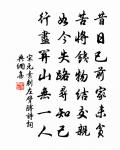 昔日已前家未貧
苦將錢物結交親
如今失路尋知己
行盡關山無一人
宋元素刺左臂膊詩詞
典網集